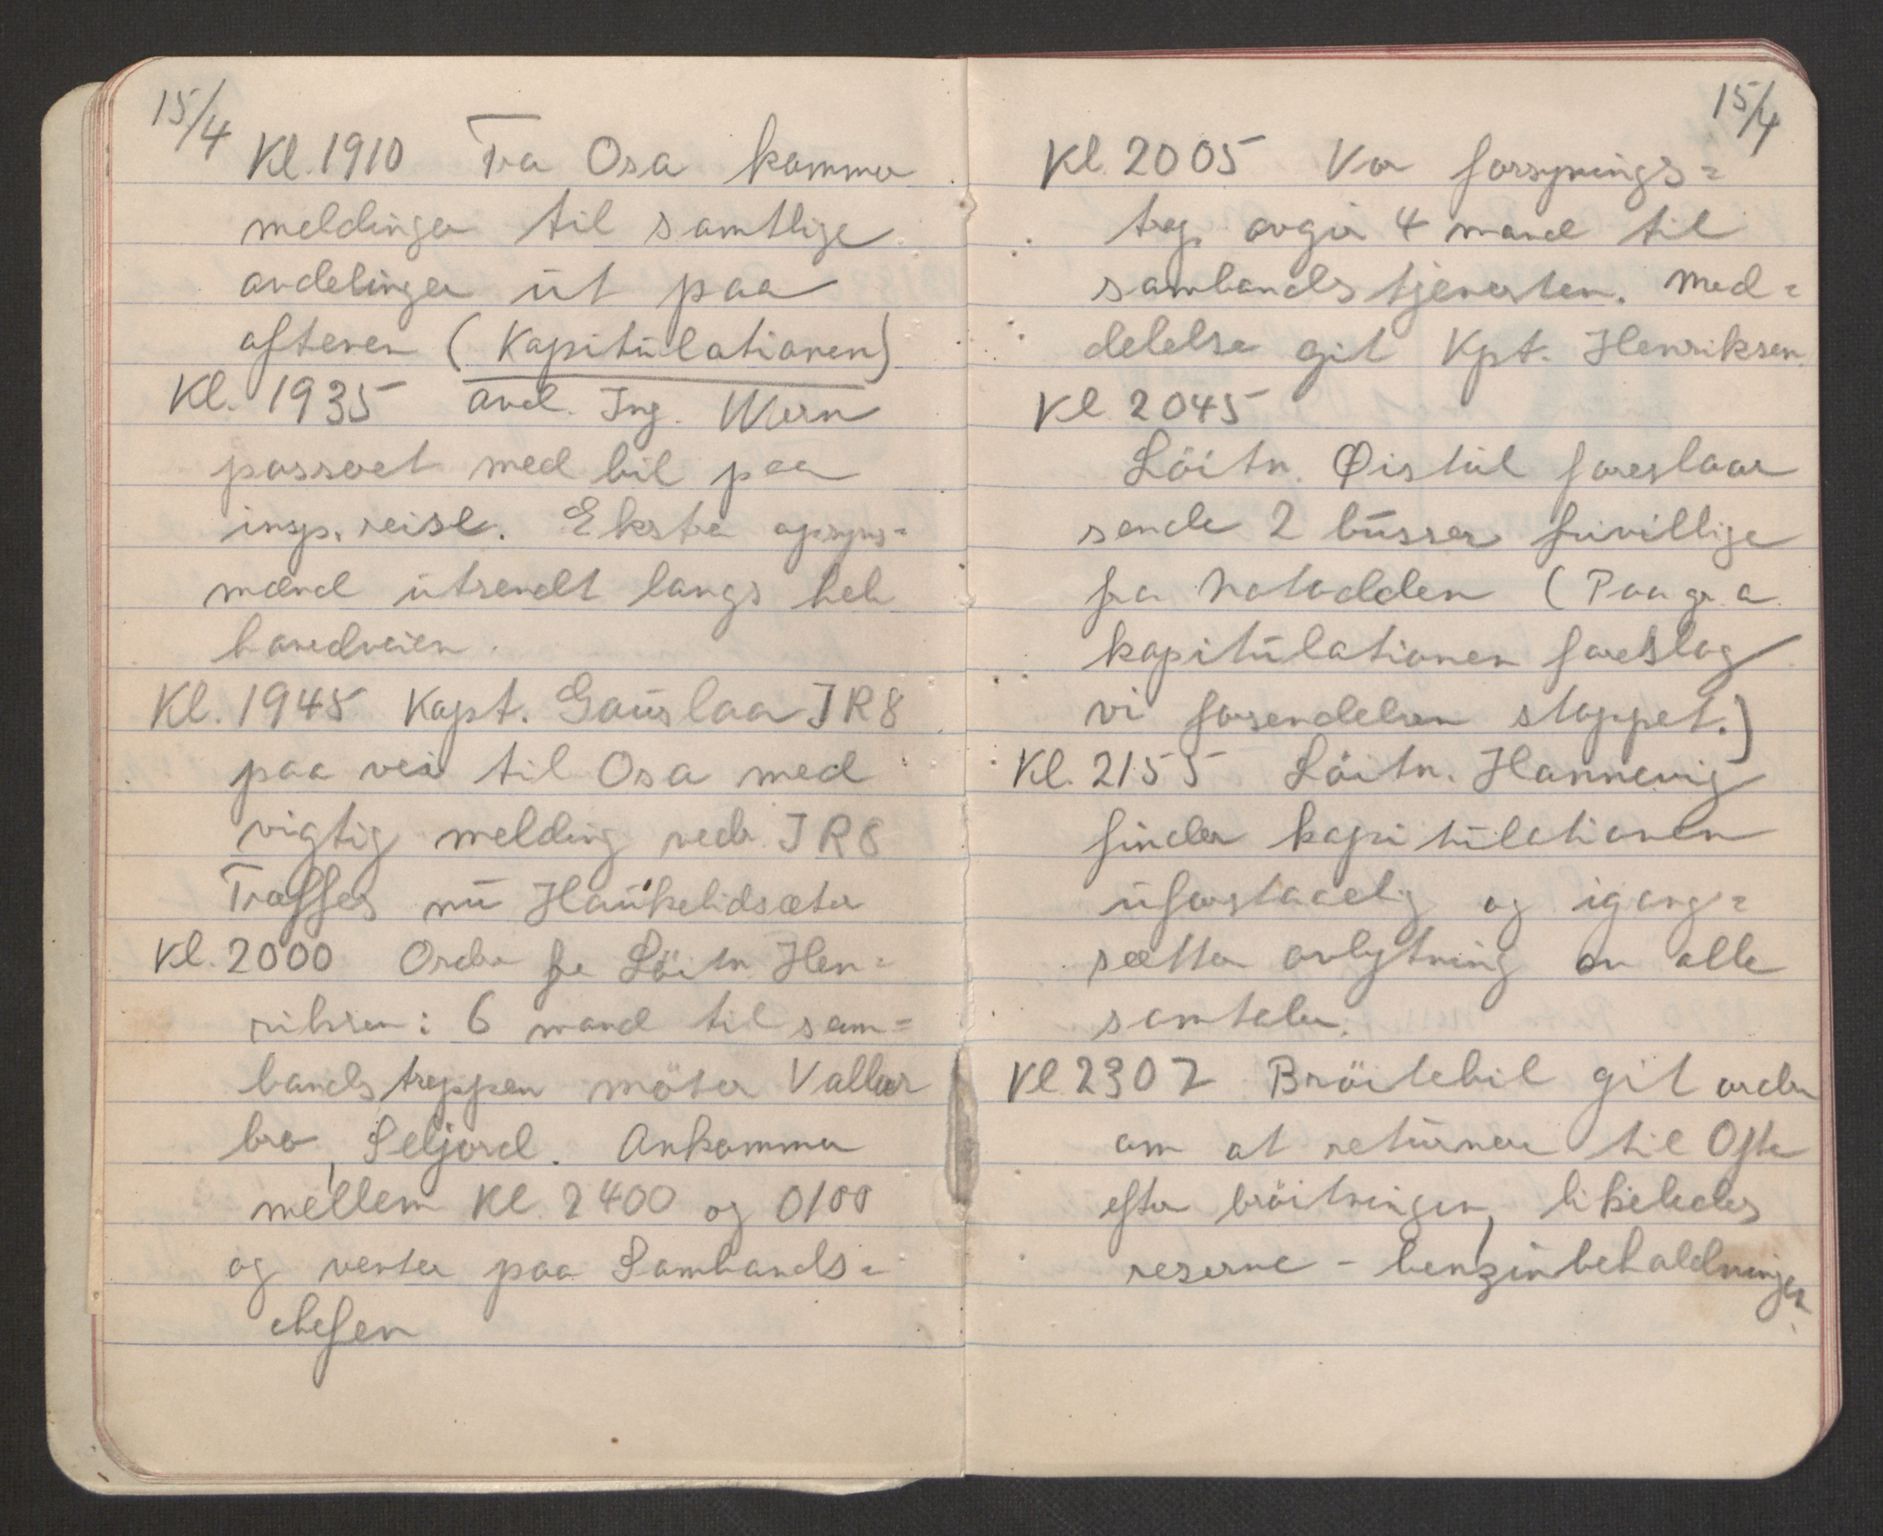 15/4
Kl. 1910 Fra Osa kommer
meldinger til samtlige
avdelinger ut paa
aftenen (Kapitulationen)
Kl. 1935 avd. Ing. Wern
passeret med bil paa
insp. reise. Ekstra opsyns=
mænd utsendt langs hele
hovedveien.
Kl. 1945 Kapt. Gauslaa IR8
paa vei til Osa med
vigtig melding vedr. IR8
Træffes nu Haukelidsæter
Kl. 2000 Ordre fra Löitn. Hen=
riksen: 6 mand til sam=
bandstroppen möter Vallar
bro, Seljord. Ankommer
mellem Kl. 2400 og 0100
og venter paa Sambands=
chefen
15/4
Kl. 2005 Vor forsynings=
trop. avgir 4 mand til
sambandstjenesten. Med=
delelse git Kpt. Henriksen.
Kl. 2045
Löitn. Øistul foreslaar
sende 2 busser frivillige
fra Notodden (Paa gr. a
kapitulationen foreslog
vi forsendelsen stoppet.)
Kl. 2155 Löitn. Hannevig
finder kapitulationen
uforstaaelig og igang=
sætter avlytning av alle
samtaler.
Kl 2307 Bröitebil git ordre
om at returnere til Ofte
efter bröitningen, likeledes
reserve - benzinbeholdningen.